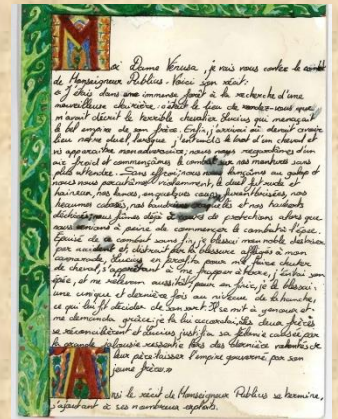 Moi Dame Vérusa, je vais vous conter le combat
de Monseigneur Publius. Voici son récit:
« J'étais dans une immense forêt à la recherche d'une
merveilleuse clairière: c'était le lieu de rendez-vous que
m'avait décrit le terrible chevalier Lucius qui menaçait
le bel empire de son frère. Enfin, j'arrivai où devait avoir
lieu notre duel, lorsque j'entendis le bruit d'un cheval et
vis apparaître mon adversaire, nous nous regardâmes d'un
air froid et commençâmes le combat sur nos montures sans
plus attendre. Sans effroi, nous nous lançâmes au galop et
nous nous percutâmes violemment, le duel fut rude et
haineux, nos lances, en quelques coups furent brisées, nos
heaumes cabossés, nos et nos hauberts
déchirés, nous fûmes déjà à de protections alors que
nous venions à peine de commencer le combat à l'épée.
Épuisé de ce combat sans fin, je blessai mon noble destrier
par accident et distrait par la blessure affligée à mon
camarade, Lucius en profita pour me faire chuter
de cheval, s'apprêtant à me frapper à terre, j'évitai son
épée, et me relevai aussitôt, pour en finir, je le blessai
une unique et dernière fois au niveau de la hanche,
ce qui lui fit décider de son sort. Il se mit à genoux et
me demanda grâce, je la lui accordai, les deux frères
se réconcilièrent et Lucius justifia sa félonie causée par
la grande jalousie ressentie lors des dernières volontés de
leur père: laisser l'empire gouverné par son
jeune frère. »
Ainsi le récit de Monseigneur Publius se termine,
s'ajoutant à ses nombreux exploits.